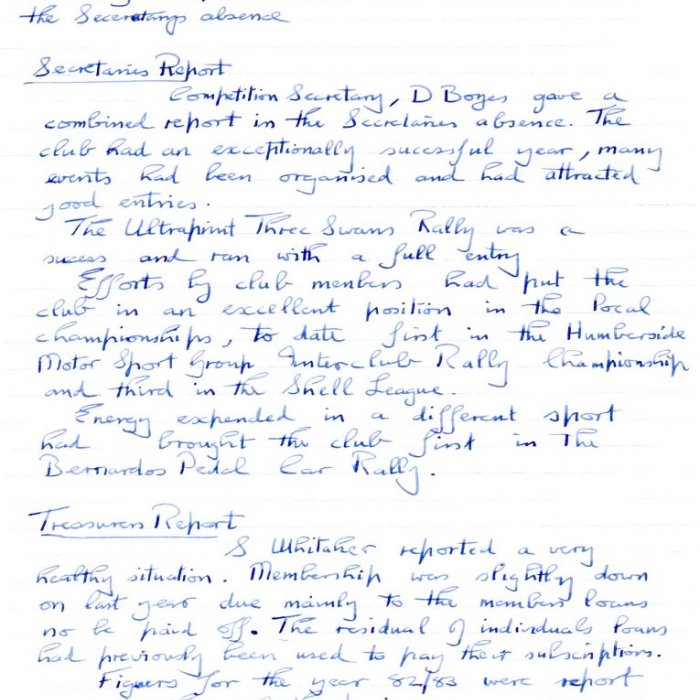 the Secretarys absence
Secretaries Report
Competition Secretary, D Boyes gave a
combined report in the Secretaries absence. The
club had an exceptionally sucessful year, many
events had been organised and had attracted
good entries.
The Ultraprint Three Swans Rally was a
sucess and ran with a full entry
Efforts by club members had put the
club in an excellent position in the local
championships, to date first in the Humberside
Motor Sport Group Interclub Rally Championship
and third in the Shell League.
Energy expended in a different sport
had brought the club first in The
Bernardos Pedal Car Rally.
Treasurers Report
S Whitaker reported a very
healthy situation. Membership was slightly down
on last year due mainly to the members loans
no be paid off. The residual of individuals loans
had previously been used to pay their subscriptions.
Figures for the year 82/83 were report